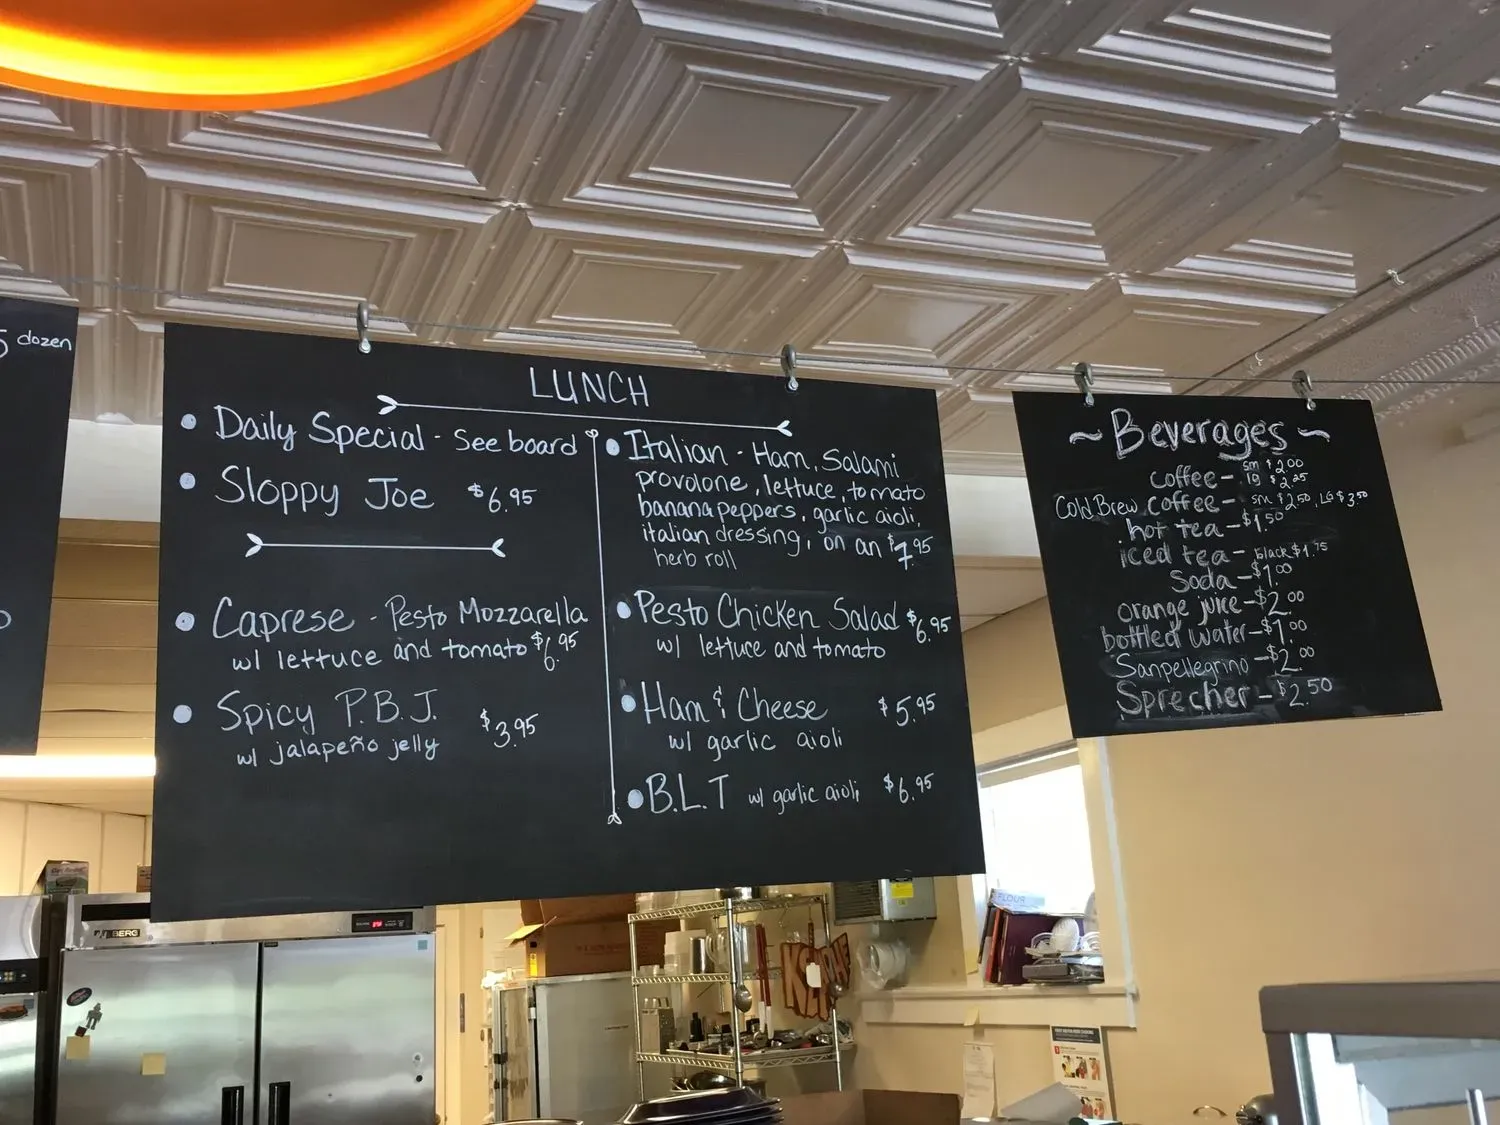 dozen
LUNCH
Daily Special - See board
Sloppy Joe $6.95
Caprese - Pesto Mozzarella
w/ lettuce and tomato $6.95
Spicy P.B.J.
w/ jalapeño jelly $3.95
Italian - Ham, Salami
provolone, lettuce, tomato
banana peppers, garlic aioli,
italian dressing, on an $7.95
herb roll
Pesto Chicken Salad $6.95
w/ lettuce and tomato
Ham & Cheese $5.95
w/ garlic aioli
B.L.T w/ garlic aioli $6.95
~ Beverages ~
coffee - sm $2.00
lg $2.25
Cold Brew coffee - sm $2.50, LG $3.50
hot tea - $1.50
iced tea - black $1.75
Soda - $1.00
orange juice - $2.00
bottled water - $1.00
Sanpellegrino - $2.00
Sprecher - $2.50
FLOUR